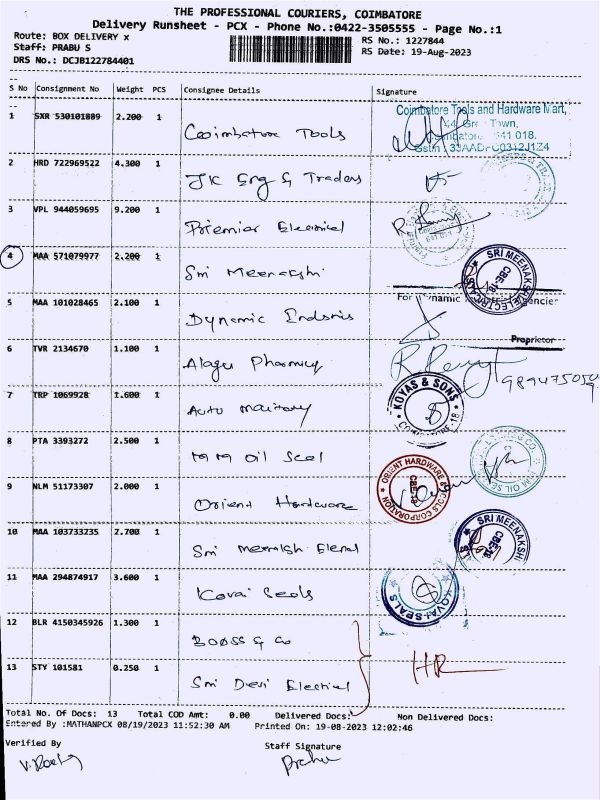 THE PROFESSIONAL COURIERS, COIMBATORE
Delivery Runsheet - PCX - Phone No.:0422-3505555 - Page No.:1
Route: BOX DELIVERY x
RS No.: 1227844
Staff: PRABU S
RS Date: 19-Aug-2023
DRS No.: DCJB122784401
S No Consignment No Weight PCS Consignee Details Signature
1 SXR 530101889 2.200 1 Coimbatore Tools
Coimbatore Tools and Hardware Mart,
Town,
641 018.
2 HRD 722969522 4.300 1 JK Eng & Traders
3 VPL 944059695 9.200 1 Premier Electrical
4 MAA 571079977 2.200 1 Sri Meenakshi
SRI MEENAKSHI ELECTRICALS
CBE-18
5 MAA 101028465 2.100 1 Dynamic Indstris
For Dynamic
Proprietor
6 TVR 2134670 1.100 1 Alagu Pharmacy
7 TRP 1069928 1.600 1 Auto
KOYAS & SONS
COIMBATORE-18
8 PTA 3393272 2.500 1 oil Seal
9 NLM 51173307 2.000 1 Orient Hardware
ORIENT HARDWARE & TOOLS CORPORATION
CBE-18
10 MAA 103733235 2.700 1 Sri
SRI MEENAKSHI
CBE-18
11 MAA 294874917 3.600 1 Kovai Seals
KOVAI-SEALS
12 BLR 4150345926 1.300 1 & Co
13 STY 101581 0.250 1 Sri Devi Electrical
HR
Total No. Of Docs: 13 Total COD Amt: 0.00 Delivered Docs: Non Delivered Docs:
Entered By :MATHANPCX 08/19/2023 11:52:30 AM Printed On: 19-08-2023 12:02:46
Verified By Staff Signature